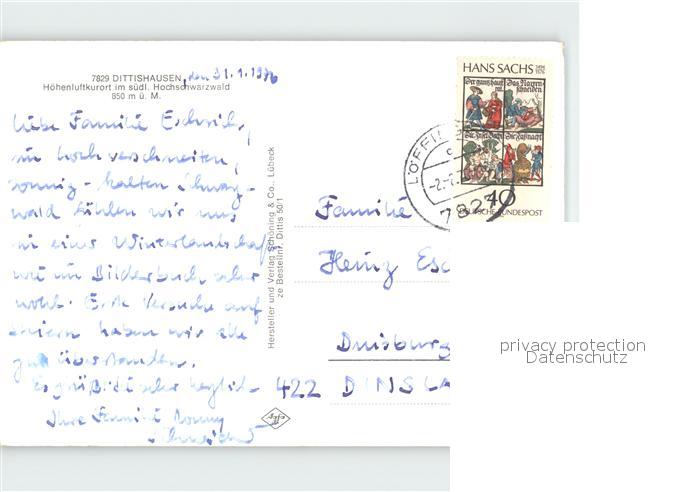 7829 DITTISHAUSEN, den 31.1.1976
Höhenluftkurort im südl. Hochschwarzwald
850 m ü. M.
Liebe Familie
im hoch verschneiten,
sonnig-kalten Schwarz-
wald fühlen wir uns
in einer Winterlandschaft
wie im Bilderbuch sehr
wohl. Erste Versuche auf
haben wir alle
gut überstanden.
Es grüßt sehr herzlich
Ihre Familie
Hersteller und Verlag Schöning & Co., Lübeck
ze Bestellnr. Dittis 50/1
HANS SACHS 1494 1576
Der gantz haus
Das Narren
schneiden
Die
40
DEUTSCHE BUNDESPOST
LÖFFI
7827
Familie
Heinz Esc
Duisburg
422 DINSLA
privacy protection
Datenschutz